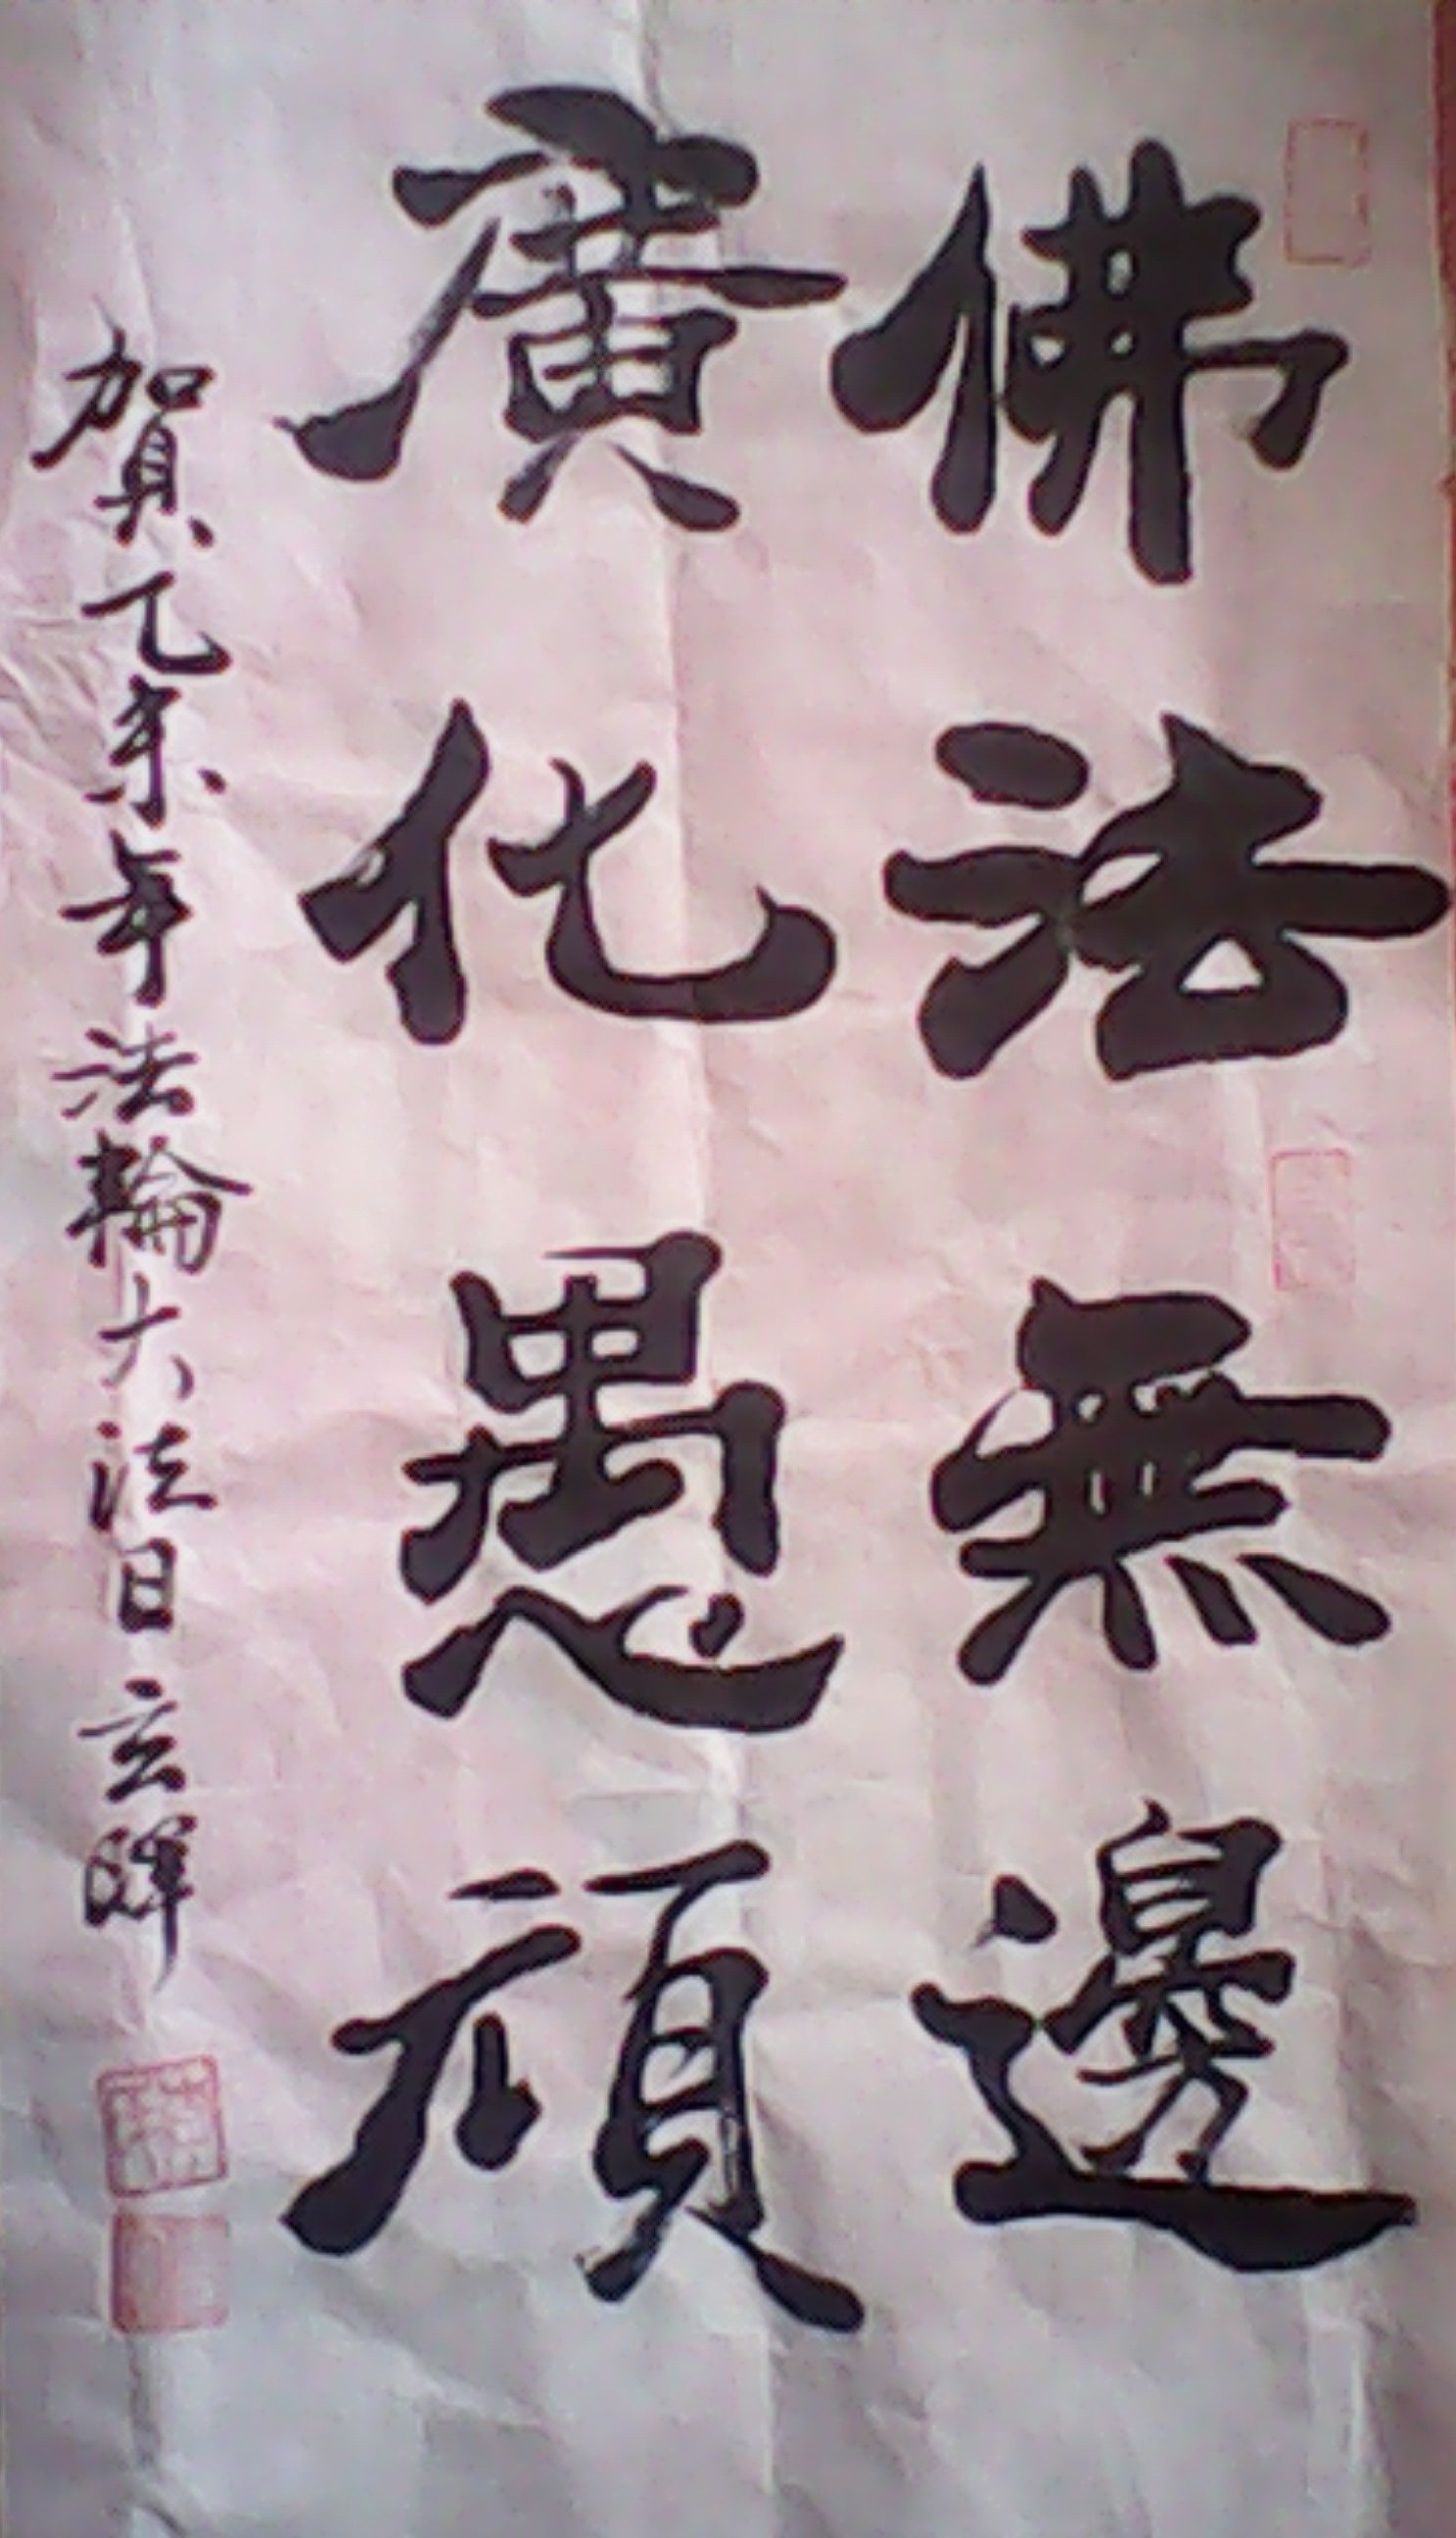 佛法無邊
廣化愚頑
賀乙未年法輪大法日玄暉